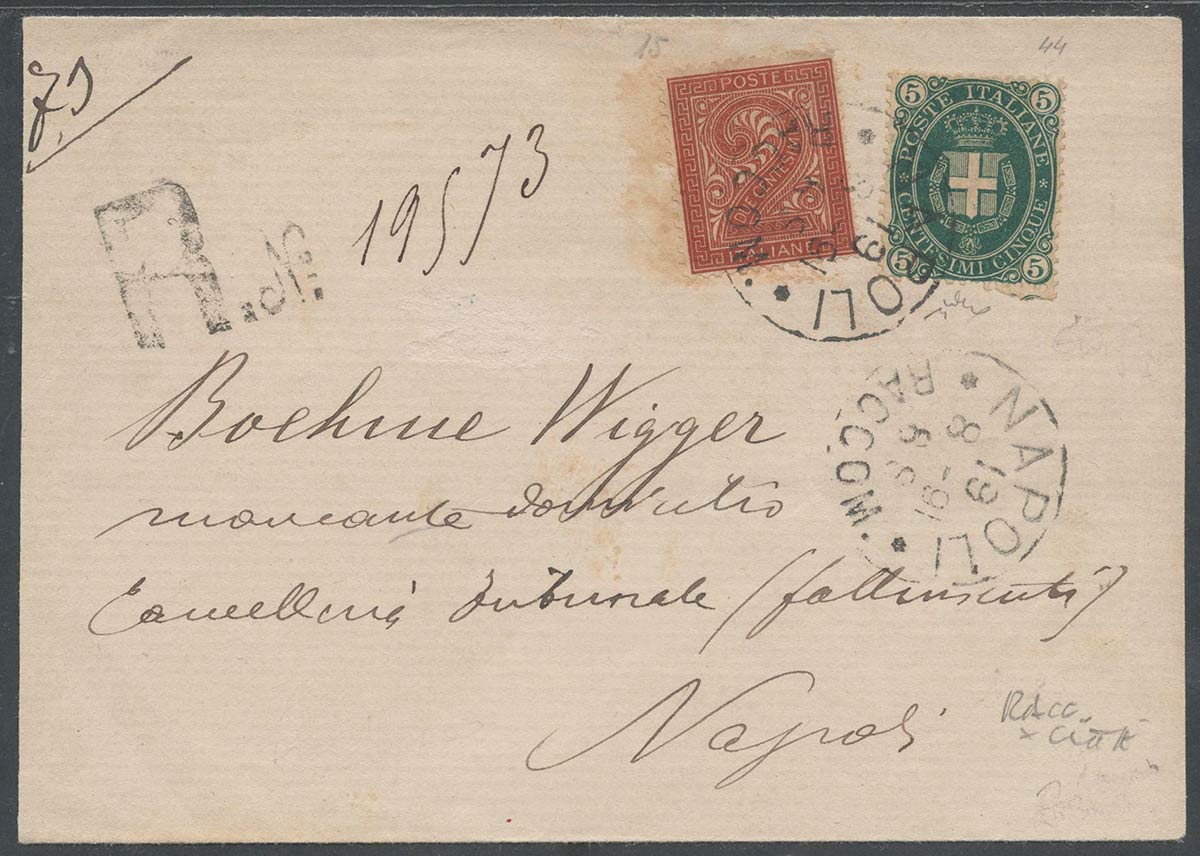 15
44
POSTE
DUE CENTESIMI
ITALIANE
5 5
POSTE ITALIANE
CENTESIMI CINQUE
5 5
R. N.º 19573
NAPOLI
NAPOLI
8-91
19
5 S
RACCOM.
Boehme Wigger
mancante domicilio
Cancelleria Tribunale (fallimenti)
Napoli
RACC.
x CITTÀ